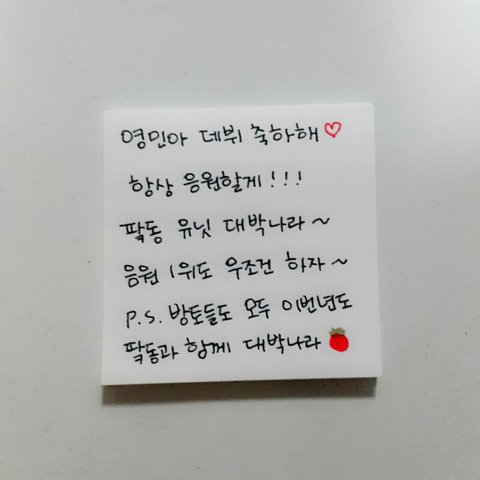 영민아 데뷔 축하해♡
항상 응원할게!!!
팤동 유닛 대박나라~
응원 1위도 우조건 하자~
p.s. 방토들도 모두 이번년도
팤동과 함께 대박나라